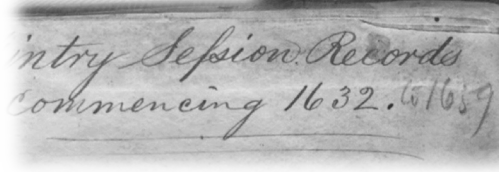 intry Session Records
commencing 1632. to 1659